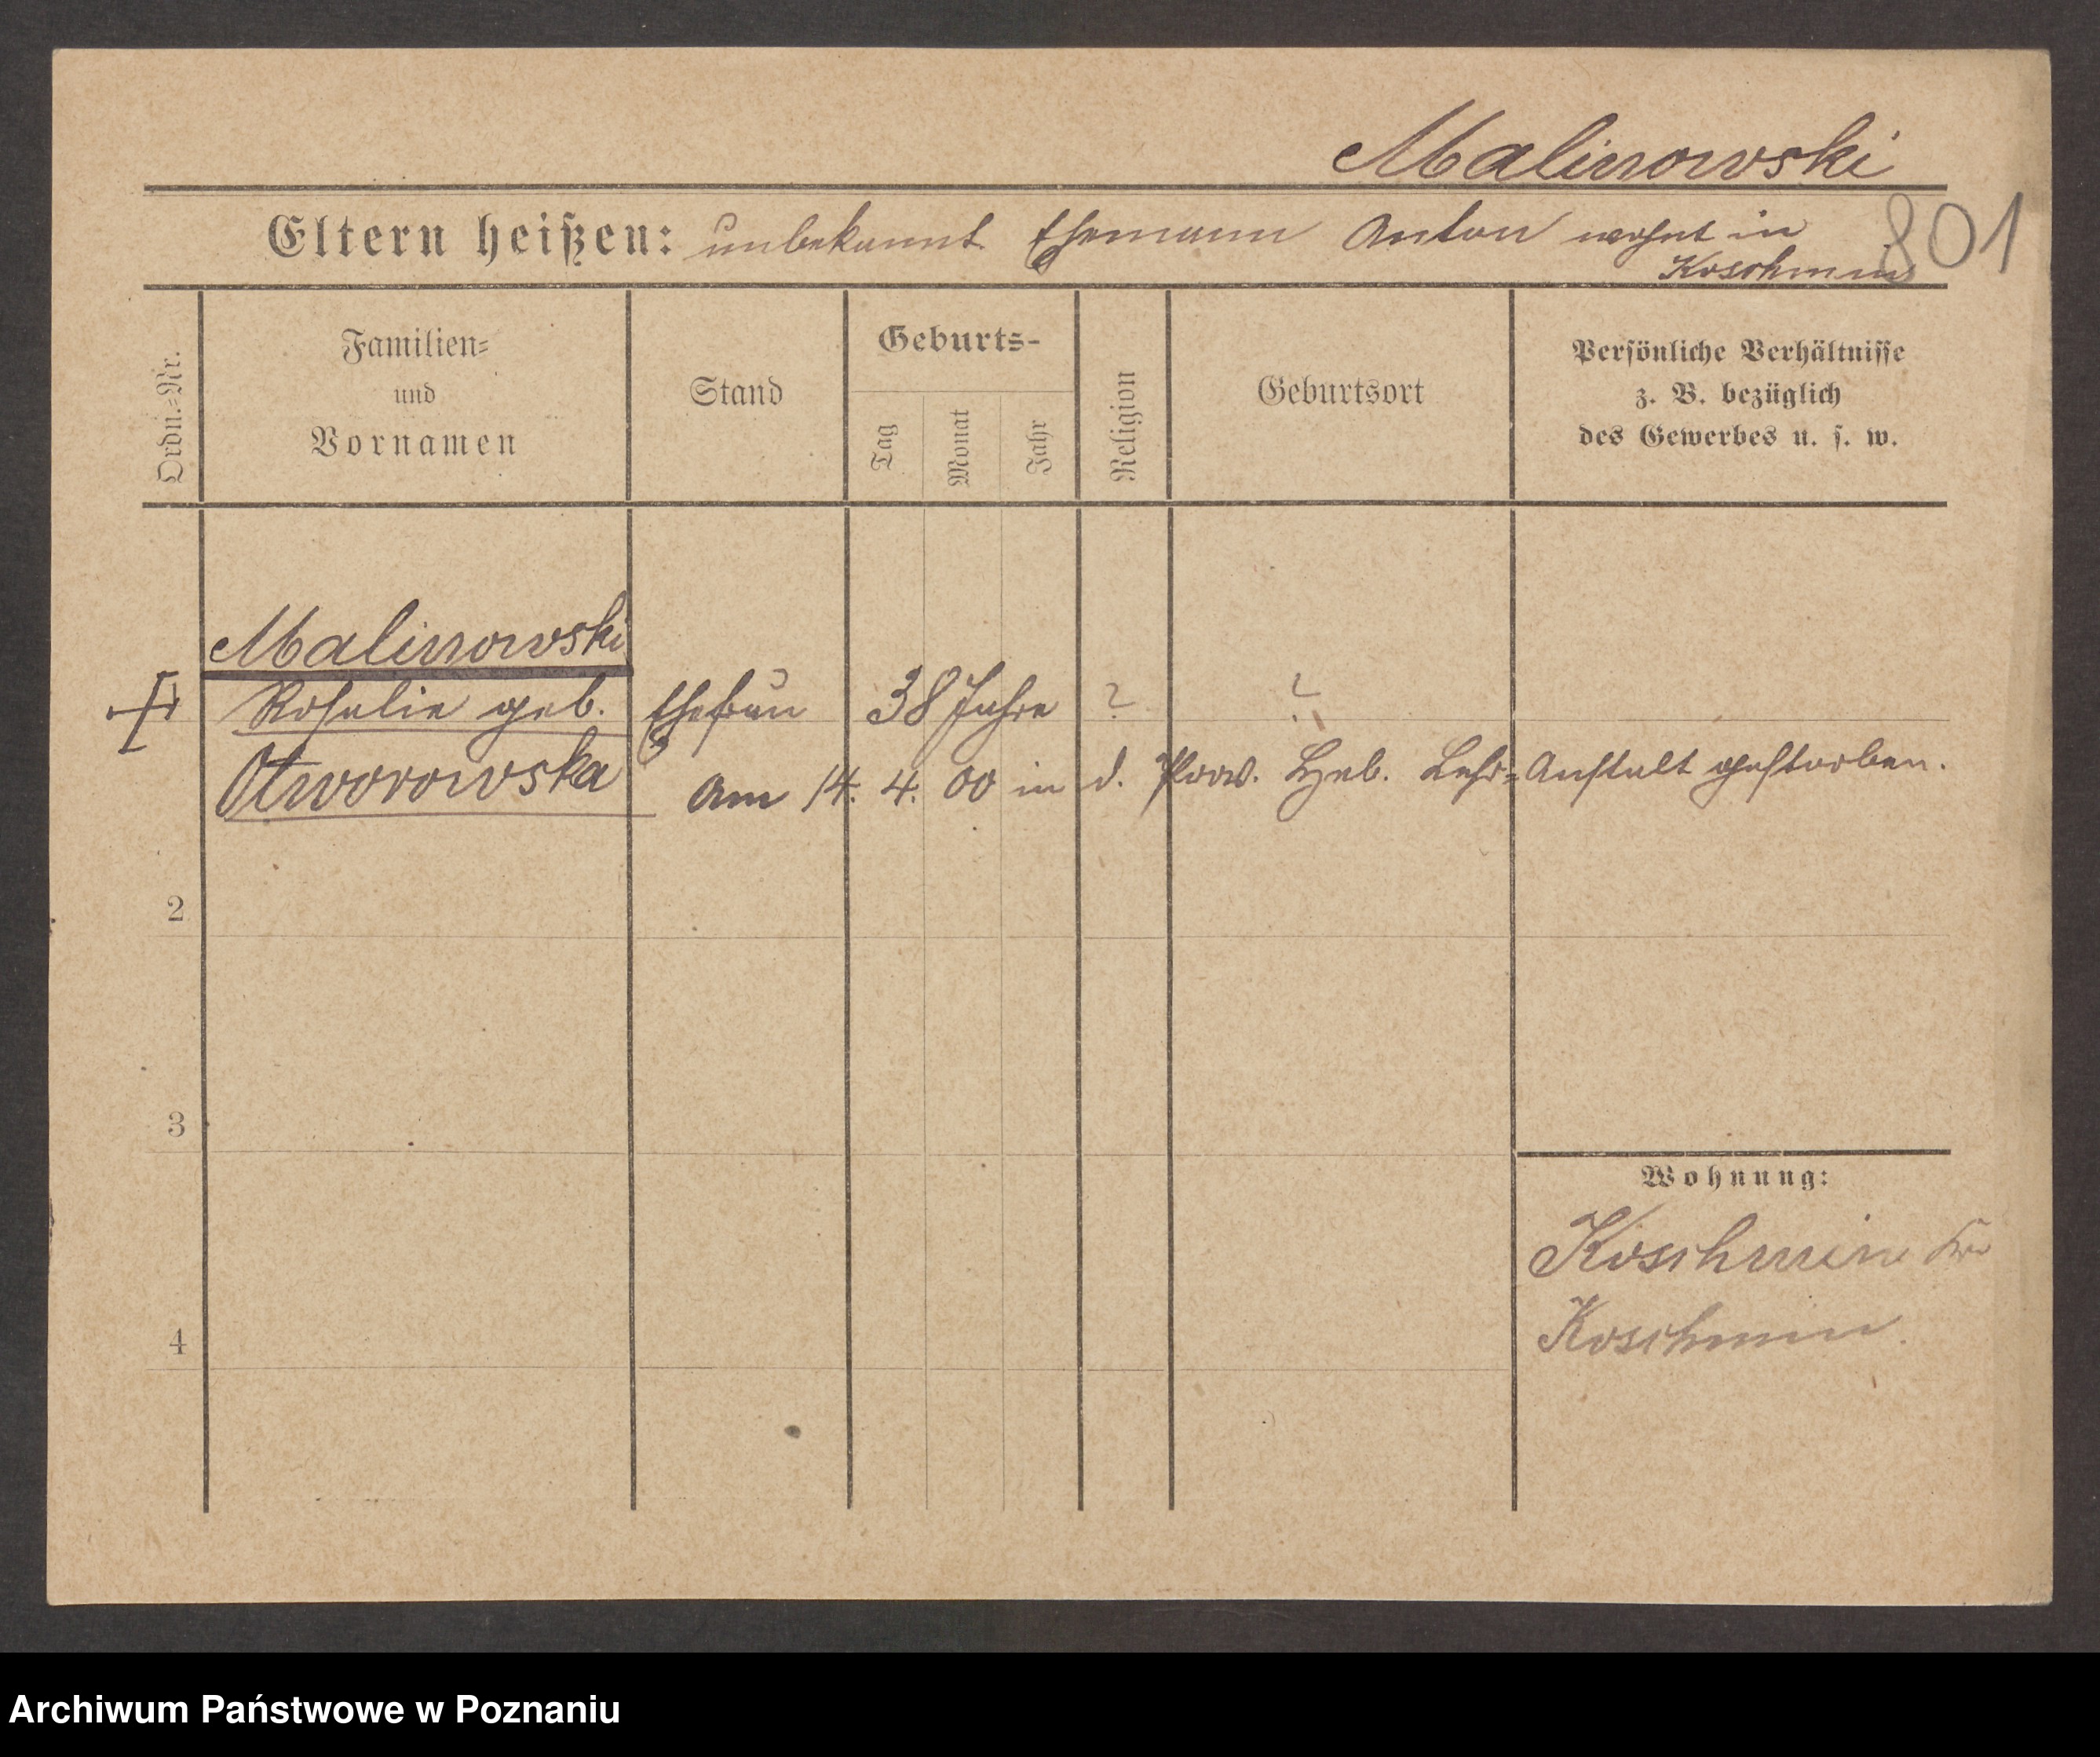 Malinowski
Eltern heißen: unbekannt Ehemann Anton wohnt in
Koschmin
801
Ordn.-Nr.
Familien-
und
Vornamen
Stand
Geburts-
Tag
Monat
Jahr
Religion
Geburtsort
Persönliche Verhältnisse
z. B. bezüglich
des Gewerbes u. s. w.
Malinowski
Rosalie geb. Ehefrau 38 Jahre ? ?
Otworowska
Am 14. 4. 00 in d. Prov. Heb. Lehr-Anstalt gestorben.
2
3
Wohnung:
Koschmin Kr
Koschmin.
4
Archiwum Państwowe w Poznaniu